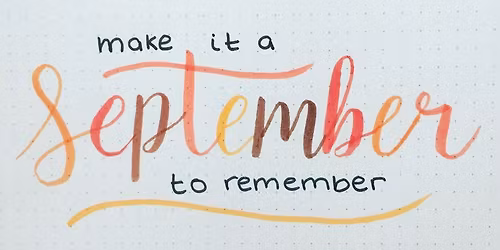 make it a
September
to remember